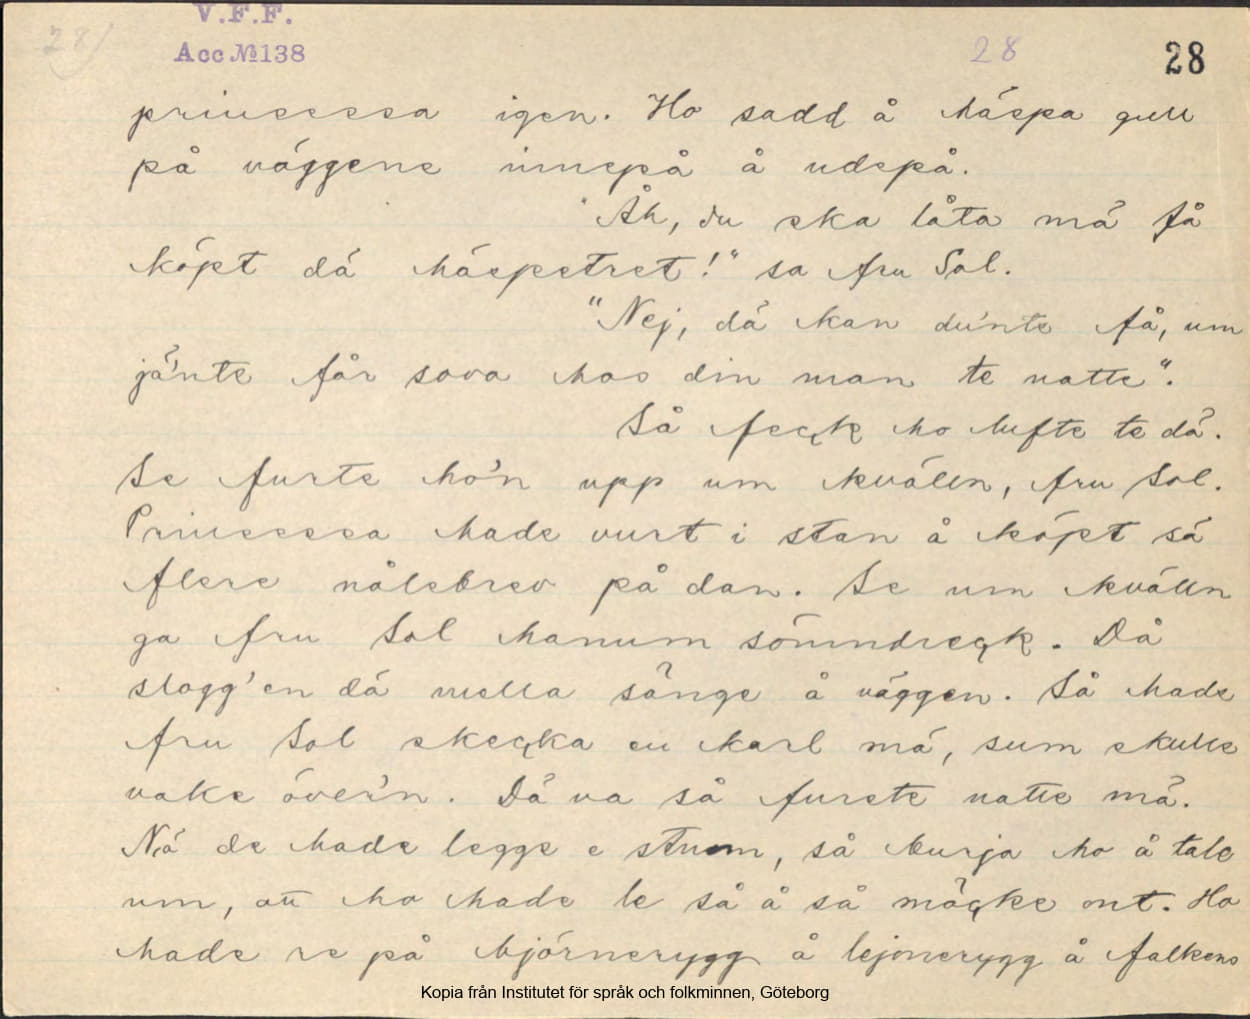 28)
V.F.F.
Acc № 138
28
28
prinsessa igen. Ho sadd å häspa gull
på väggene innepå å udepå.
"Åh, du ska låta mä få
köpt dä häspetret!" sa fru Sol.
"Nej, dä kan du'nte få, um
jä'nte får sova hos din man te natte".
Så feck ho lufte te dä.
Se furte ho'n upp um kvälln, fru Sol.
Prinsessa hade vurt i stan å köpt sä
flere nålebrev på dan. Se um kvälln
ga fru Sol hanum sömndreck. Då
slogg'en dä mella sänge å väggen. Så hade
fru Sol skecka en karl mä, sum skulle
vake över'n. Dä va så furste natte mä.
Nä de hade legge e stunn, så burja ho å tale
um, att ho hade le så å så möcke ont. Ho
hade re på björnerygg å lejonerygg å falkens
Kopia från Institutet för språk och folkminnen, Göteborg